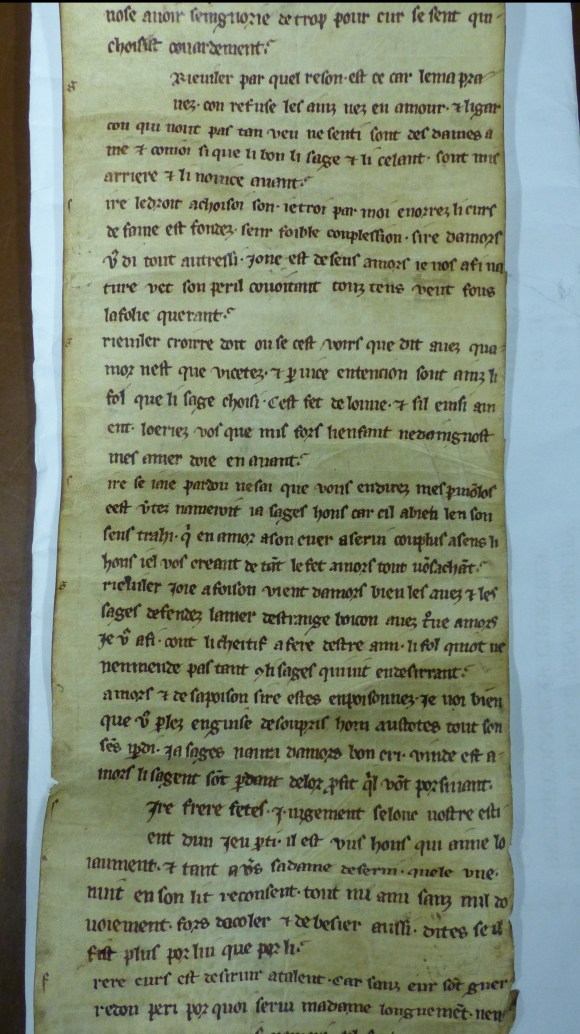 nose avoir seingnorie de trop pour cur se sent qui
choisist couardement.
Rieuiler par quel reson est ce car lema pra
nez. con refuse les amz nez en amour. ⁊ ligar
con qui nont pas tan veu ne senti sont des dames a
me ⁊ comoi si que li bon li sage ⁊ li celant. sont mis
arriere ⁊ li novice avant.
ire le droit achoisoi son. ie troi par moi enorrez li curs
de fame est fondez. seur foible couplession. sire damors
di tout autressi. Ione est de sens amors ie vos afi na
ture vet son peril covoitant touz tens vent fous
la folie querant.
rieuiler croirre doit on se cest voirs que dit avez qua
mor nest que vicetez. ⁊ ꝑ vice entencion sont amz li
fol que li sage choisi. Cest fet de lonne. ⁊ sil einsi am
ent. loeriez vos que mis fors lienfant nedaingnost
mes amer doie en avant.
ire se iaie pardon ne sai que vous endirez mes
cest namervit ia sages hons car cil abien len son
sens trahi. en amor a son cuer a servi couplus a sens li
hons iel vos creant de tāt le fet amors tout
rieuiler Joie a foison vient damors bien les avez ⁊ les
sages defendez lamer destrange boicon avez amors
Je afi. cont li cheitif a fere destre ami. li fol quiot ne
nenmende pas tant li sages qui vit en desirrant.
amors ⁊ de sapoison sire estes enpoisonnez. Je voi bien
que ꝑlez enguise de soupris hom austotes tout son
sēs ꝑdi. Ja sages namri damors bon cri. vinde est a
mors li sagent sōt ꝑdant delor ꝓfit vōt porsivant.
Ire frere fetes .j. iugement selonc vostre esci
ent dun Jeu ꝑti. il est vns hons qui aime lo
iaument. ⁊ tant a sa dame deserui. quele vne.
nuit en son lit reconsent. tout nu anu sanz nul do
noiement. fors dacoler ⁊ de besier aussi. dites se il
fait plus por lui que por li.
rere curs est deservir atalent. Car sanz eur sōt guer
redon peri por quoi servi ma dame longuemēt. nen